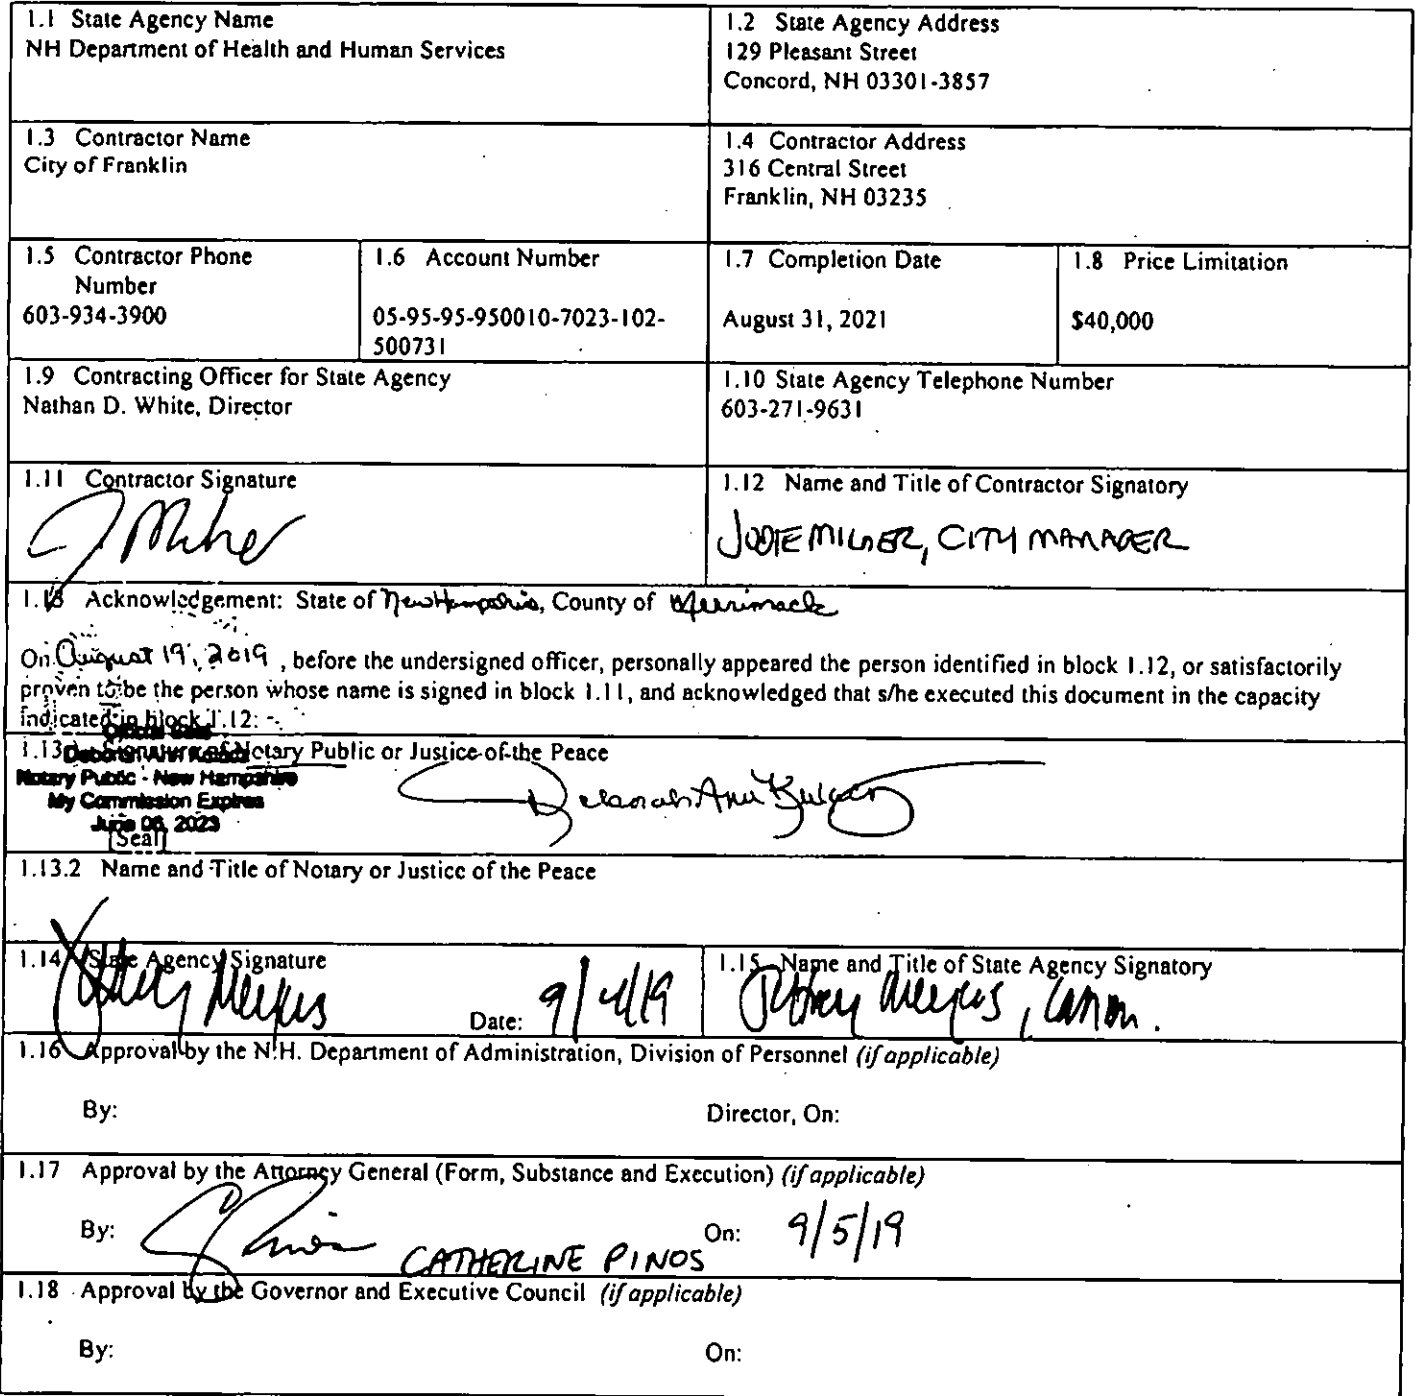 1.1 State Agency Name
NH Department of Health and Human Services
1.2 State Agency Address
129 Pleasant Street
Concord, NH 03301-3857
1.3 Contractor Name
City of Franklin
1.4 Contractor Address
316 Central Street
Franklin, NH 03235
1.5 Contractor Phone
Number
603-934-3900
1.6 Account Number
05-95-95-950010-7023-102-
500731
1.7 Completion Date
August 31, 2021
1.8 Price Limitation
$40,000
1.9 Contracting Officer for State Agency
Nathan D. White, Director
1.10 State Agency Telephone Number
603-271-9631
1.11 Contractor Signature
1.12 Name and Title of Contractor Signatory
CITY MANAGER
1.13 Acknowledgement: State of New Hampshire, County of Merrimack
On August 19, 2019, before the undersigned officer, personally appeared the person identified in block 1.12, or satisfactorily
proven to be the person whose name is signed in block 1.11, and acknowledged that s/he executed this document in the capacity
indicated in block 1.12.
Official Seal
Deborah Ann
Notary Public - New Hampshire
My Commission Expires
June 06, 2023
Signature of Notary Public or Justice of the Peace
Deborah Ann
[Seal]
1.13.2 Name and Title of Notary or Justice of the Peace
1.14 State Agency Signature
Date: 9/4/19
1.15 Name and Title of State Agency Signatory
Meyers,
1.16 Approval by the N.H. Department of Administration, Division of Personnel (if applicable)
By:
Director, On:
1.17 Approval by the Attorney General (Form, Substance and Execution) (if applicable)
By: CATHERINE PINOS
On: 9/5/19
1.18 Approval by the Governor and Executive Council (if applicable)
By:
On: